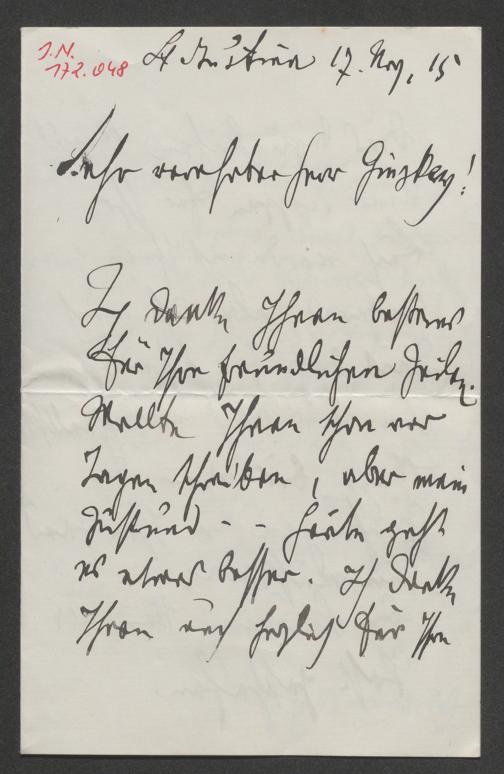 J.N.
172.048
17. Nov. 15
Sehr verehrter Herr Ginzkey!
Ich danke Ihnen bestens
für Ihre freundlichen Zeilen.
Wollte Ihnen schon vor
Tagen schreiben, aber mein
Zustand - - heute geht
es etwas besser. Ich danke
Ihnen auch herzlich für Ihre